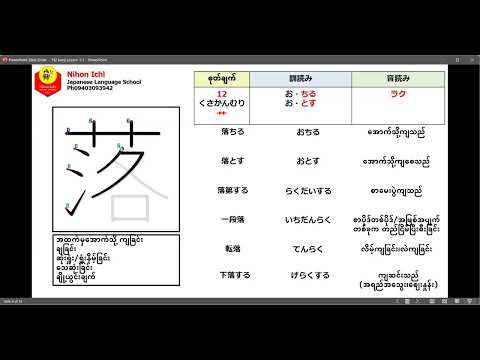 Nihon Ichi
Japanese Language School
Ph09403093942
စုတ်ချက် 訓読み 音読み
12 お・ちる ラク
くさかんむり お・とす
艹
落
落ちる おちる အောက်သို့ကျသည်
落とす おとす အောက်သို့ကျစေသည်
落第する らくだいする စာမေးပွဲကျသည်
一段落 いちだんらく စာပိုဒ်တစ်ပိုဒ်/အဖြစ်အပျက်
တစ်ခုက တည်ငြိမ်ပြီးစီးခြင်း
転落 てんらく လိမ့်ကျခြင်း၊လဲကျခြင်း
下落する げらくする ကျဆင်းသည်
(အရည်အသွေး၊ဈေးနှုန်း)
အထက်မှအောက်သို့ ကျခြင်း
ချခြင်း
ဆုံးရှုံး/ရှုံးနိမ့်ခြင်း
သေဆုံးခြင်း
ချို့ယွင်းချက်